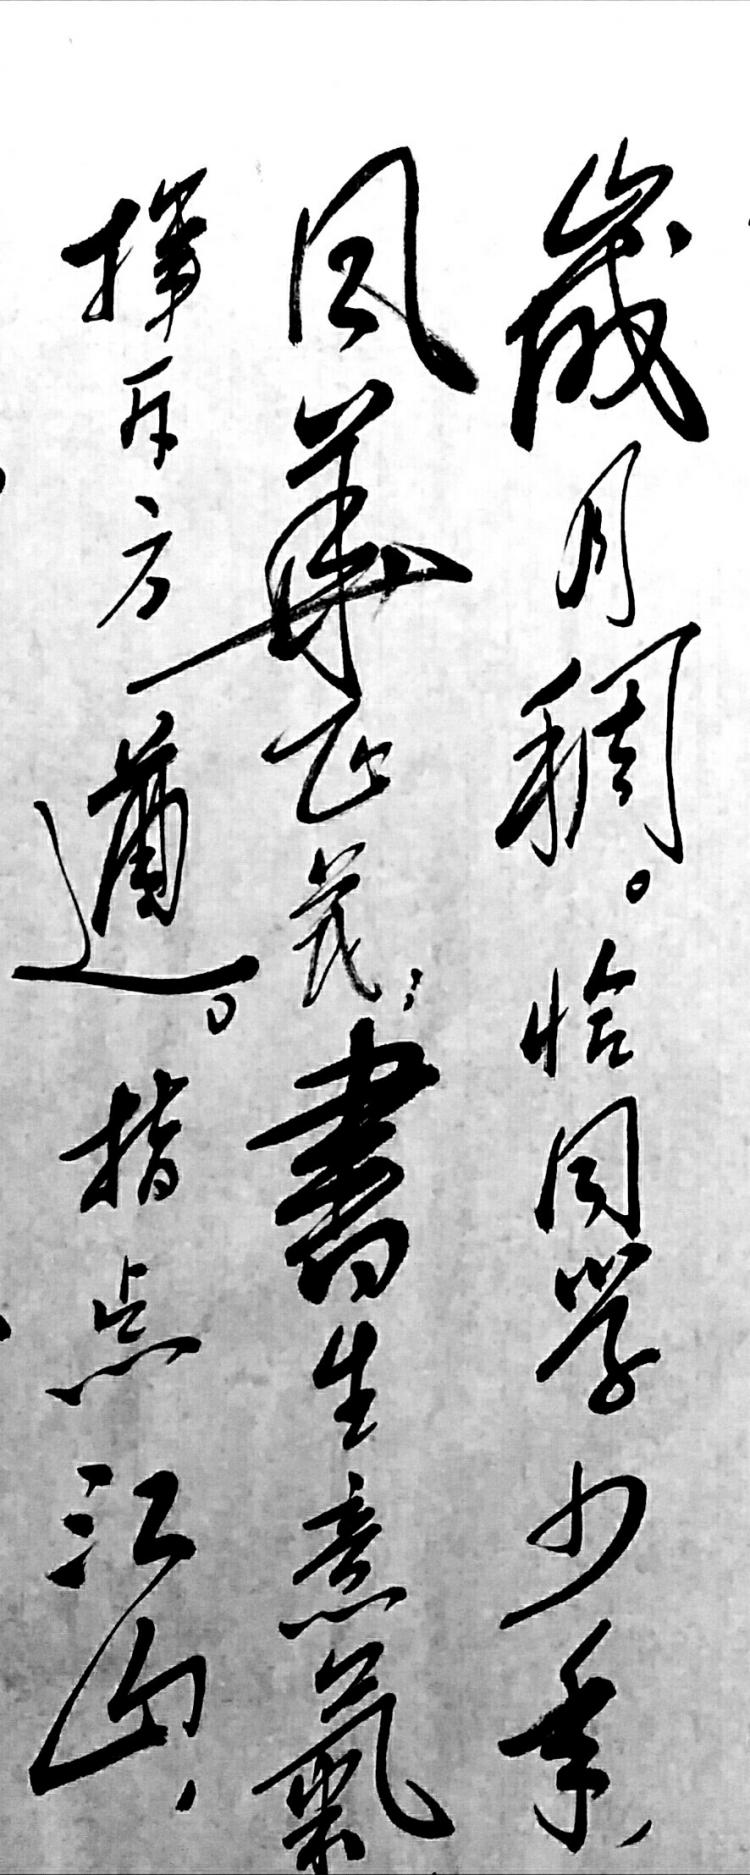 歲月稠。恰同学少年，
风華正茂；書生意氣
揮斥方遒。指点江山，